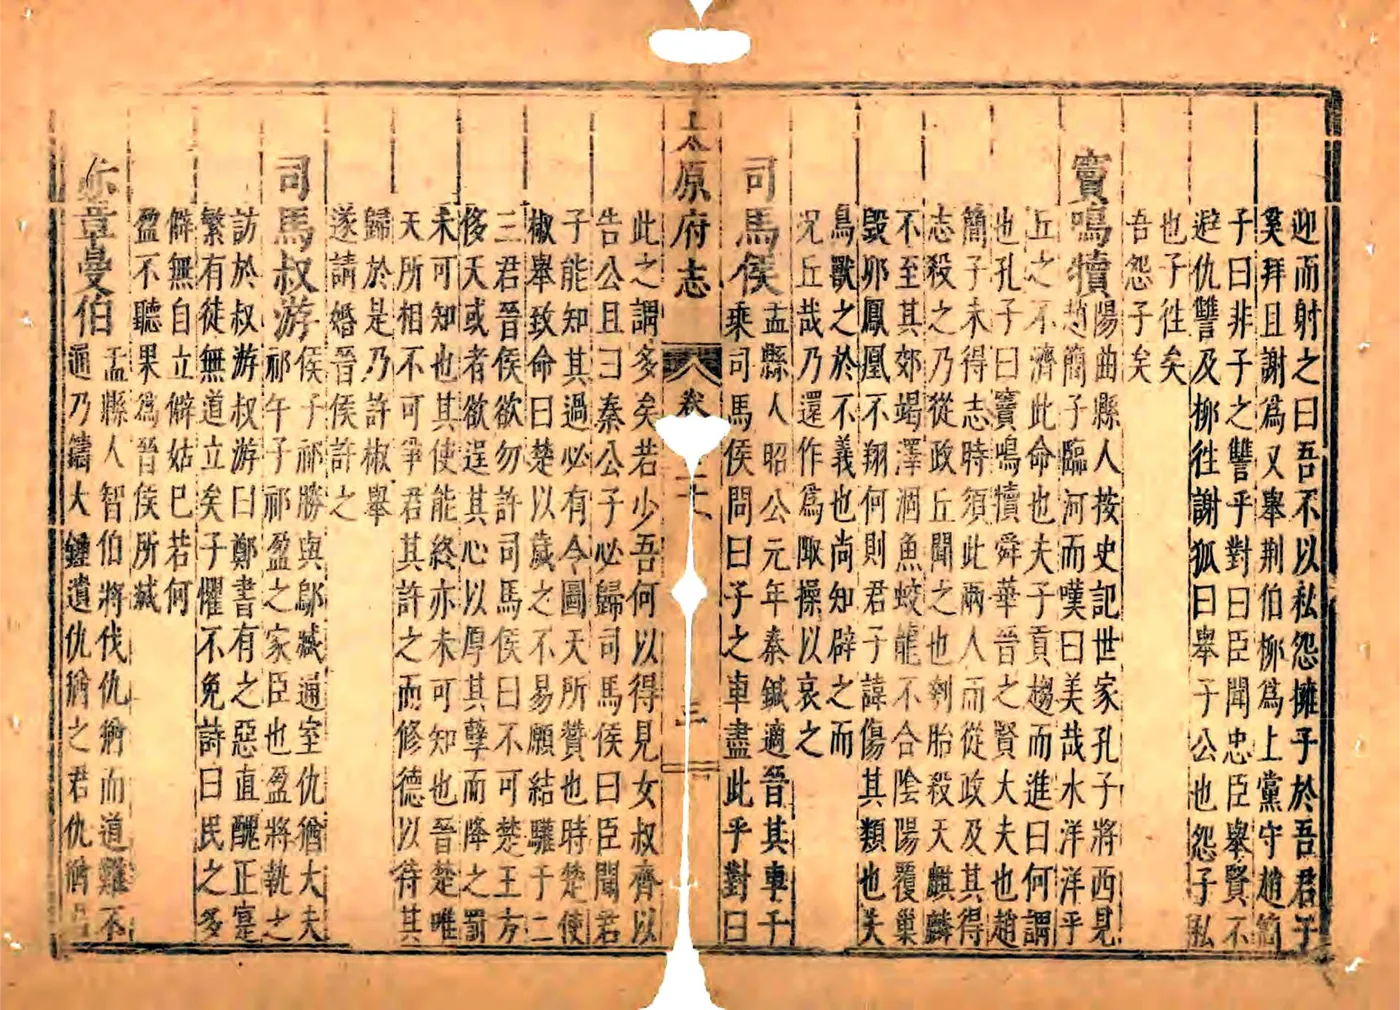 迎而射之曰吾不以私怨擁子於吾君子
奚拜且謝爲又舉荆伯柳爲上黨守趙簡
子曰非子之讐乎對曰臣聞忠臣舉賢不
避仇讐及柳徃謝狐曰舉子公也怨子私
也子徃矣
吾怨子矣
竇鳴犢
陽曲縣人按史記世家孔子將西見
趙簡子臨河而嘆曰美哉水洋洋乎
丘之不濟此命也夫子貢趨而進曰何謂
也孔子曰竇鳴犢舜華晉之賢大夫也趙
簡子未得志時須此兩人而從政及其得
志殺之乃從政丘聞之也刳胎殺夭麒麟
不至其郊竭澤涸魚蛟龍不合陰陽覆巢
毀卵鳳凰不翔何則君子諱傷其類也夫
鳥獸之於不義也尚知辟之而
况丘哉乃還作爲陬操以哀之
司馬侯
孟縣人昭公元年秦鍼適晉其車千
乘司馬侯問曰子之車盡此乎對曰
太原府志 卷 三
此之謂多矣若少吾何以得見女叔齊以
告公且曰秦公子必歸司馬侯曰臣聞君
子能知其過必有令圖天所贊也時楚使
椒舉致命曰楚以歲之不易願結驩于二
三君晉侯欲勿許司馬侯曰不可楚王方
侈天或者欲逞其心以厚其孽而降之罰
未可知也其使能終亦未可知也晉楚唯
天所相不可爭君其許之而修德以待其
歸於是乃許椒舉
遂請婚晉侯許之
司馬叔游
侯子祁勝與鄔臧通室仇猶大夫
祁午子祁盈之家臣也盈將執之
訪於叔游叔游曰鄭書有之惡直醜正寔
繁有徒無道立矣子懼不免詩曰民之多
僻無自立僻姑巳若何
盈不聽果爲晉侯所滅
赤章曼伯
孟縣人智伯將伐仇猶而道難不
通乃鑄大鍾遺仇猶之君仇猶